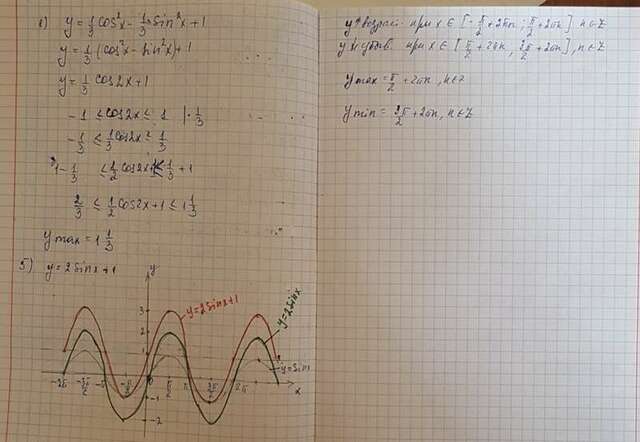 в) y = 1/3 cos²x - 1/3 sin²x + 1
y = 1/3 (cos²x - sin²x) + 1
y = 1/3 cos2x + 1
-1 ≤ cos2x ≤ 1 | · 1/3
-1/3 ≤ 1/3 cos2x ≤ 1/3
1 - 1/3 ≤ 1/2 cos2x ≤ 1/3 + 1
2/3 ≤ 1/2 cos2x + 1 ≤ 1 1/3
y max = 1 1/3
5) y = 2 sinx + 1
y
3
2
1
y = 2sinx+1
y = 2sinx
y = sinx
-2π -3π/2 -π -π/2 0 π/2 π 3π/2 2π x
-1
-2
y возрас. при x ∈ [-π/2 + 2πn ; π/2 + 2πn] n ∈ Z
y убыв. при x ∈ [π/2 + 2πn, 3π/2 + 2πn], n ∈ Z
y max = π/2 + 2πn, n ∈ Z
y min = 3π/2 + 2πn, n ∈ Z